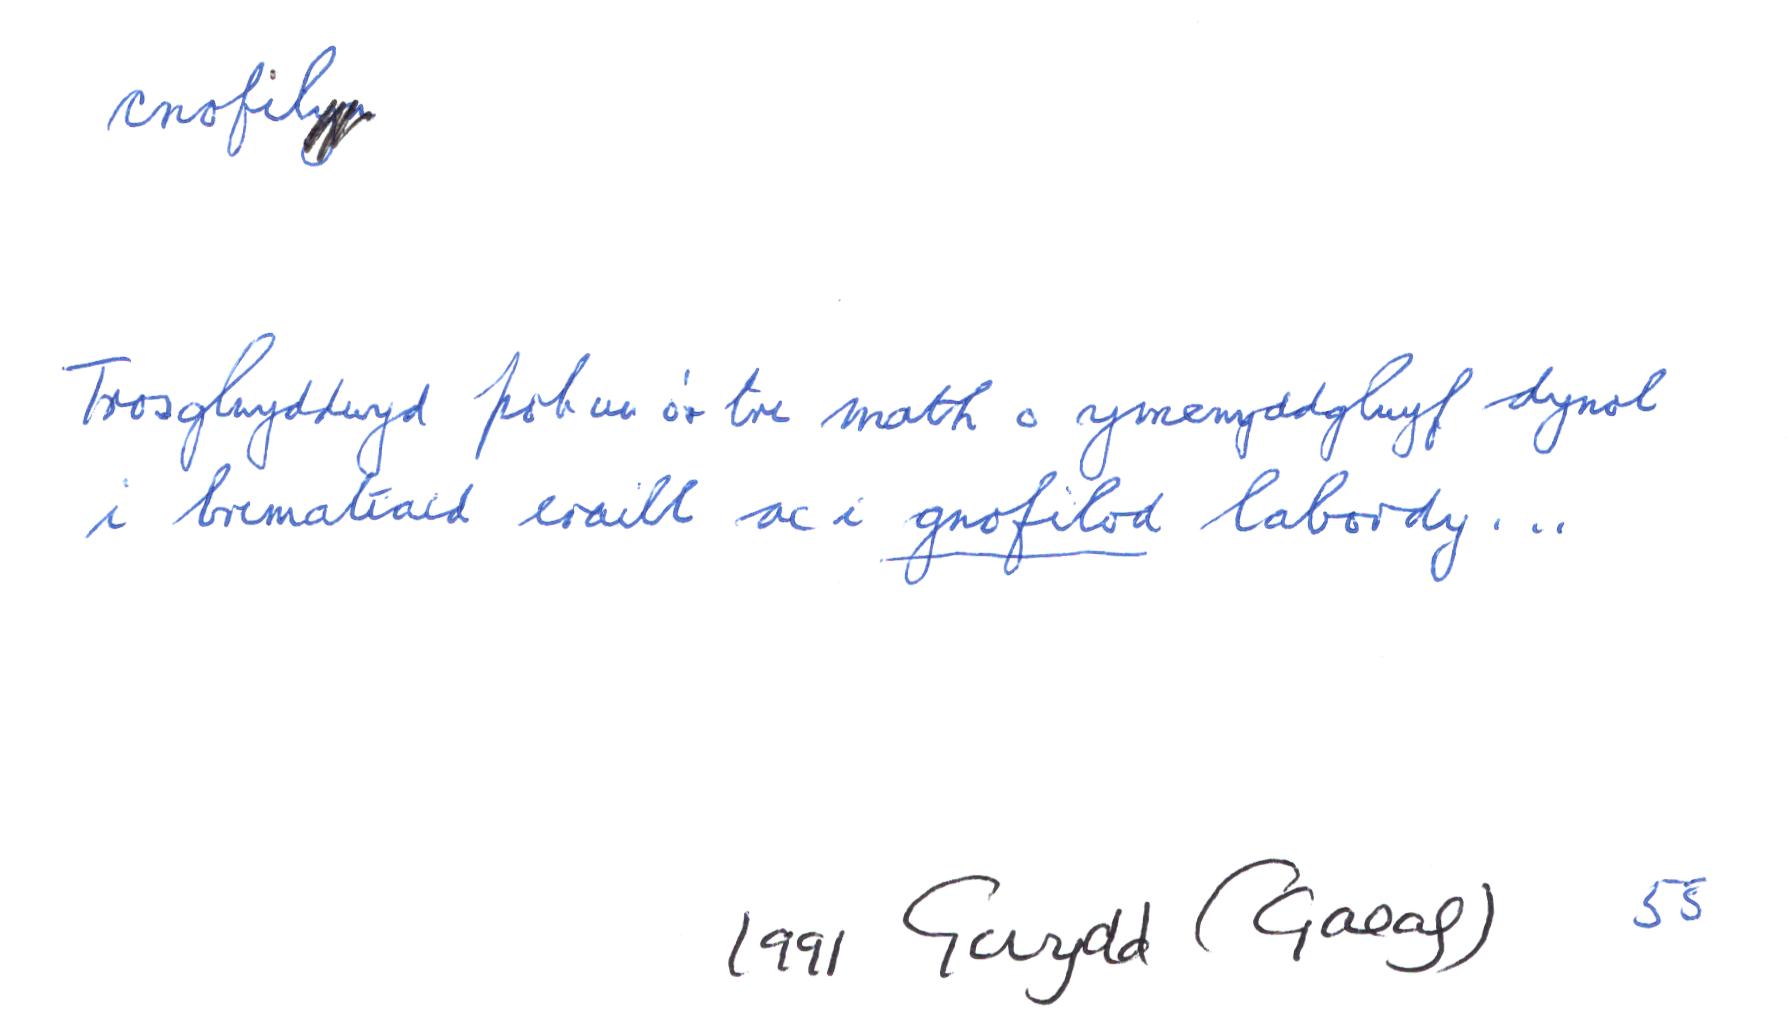 cnofil
Trosglwyddwyd pob un o'r tri math o ymenyddglwyf dynol
i brimatiaid eraill ac i gnofilod labordy...
1991 Gwydd (Gaeaf) 55